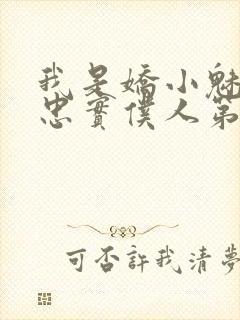 我是嬌小魅
忠實僕人第
可否許我清夢